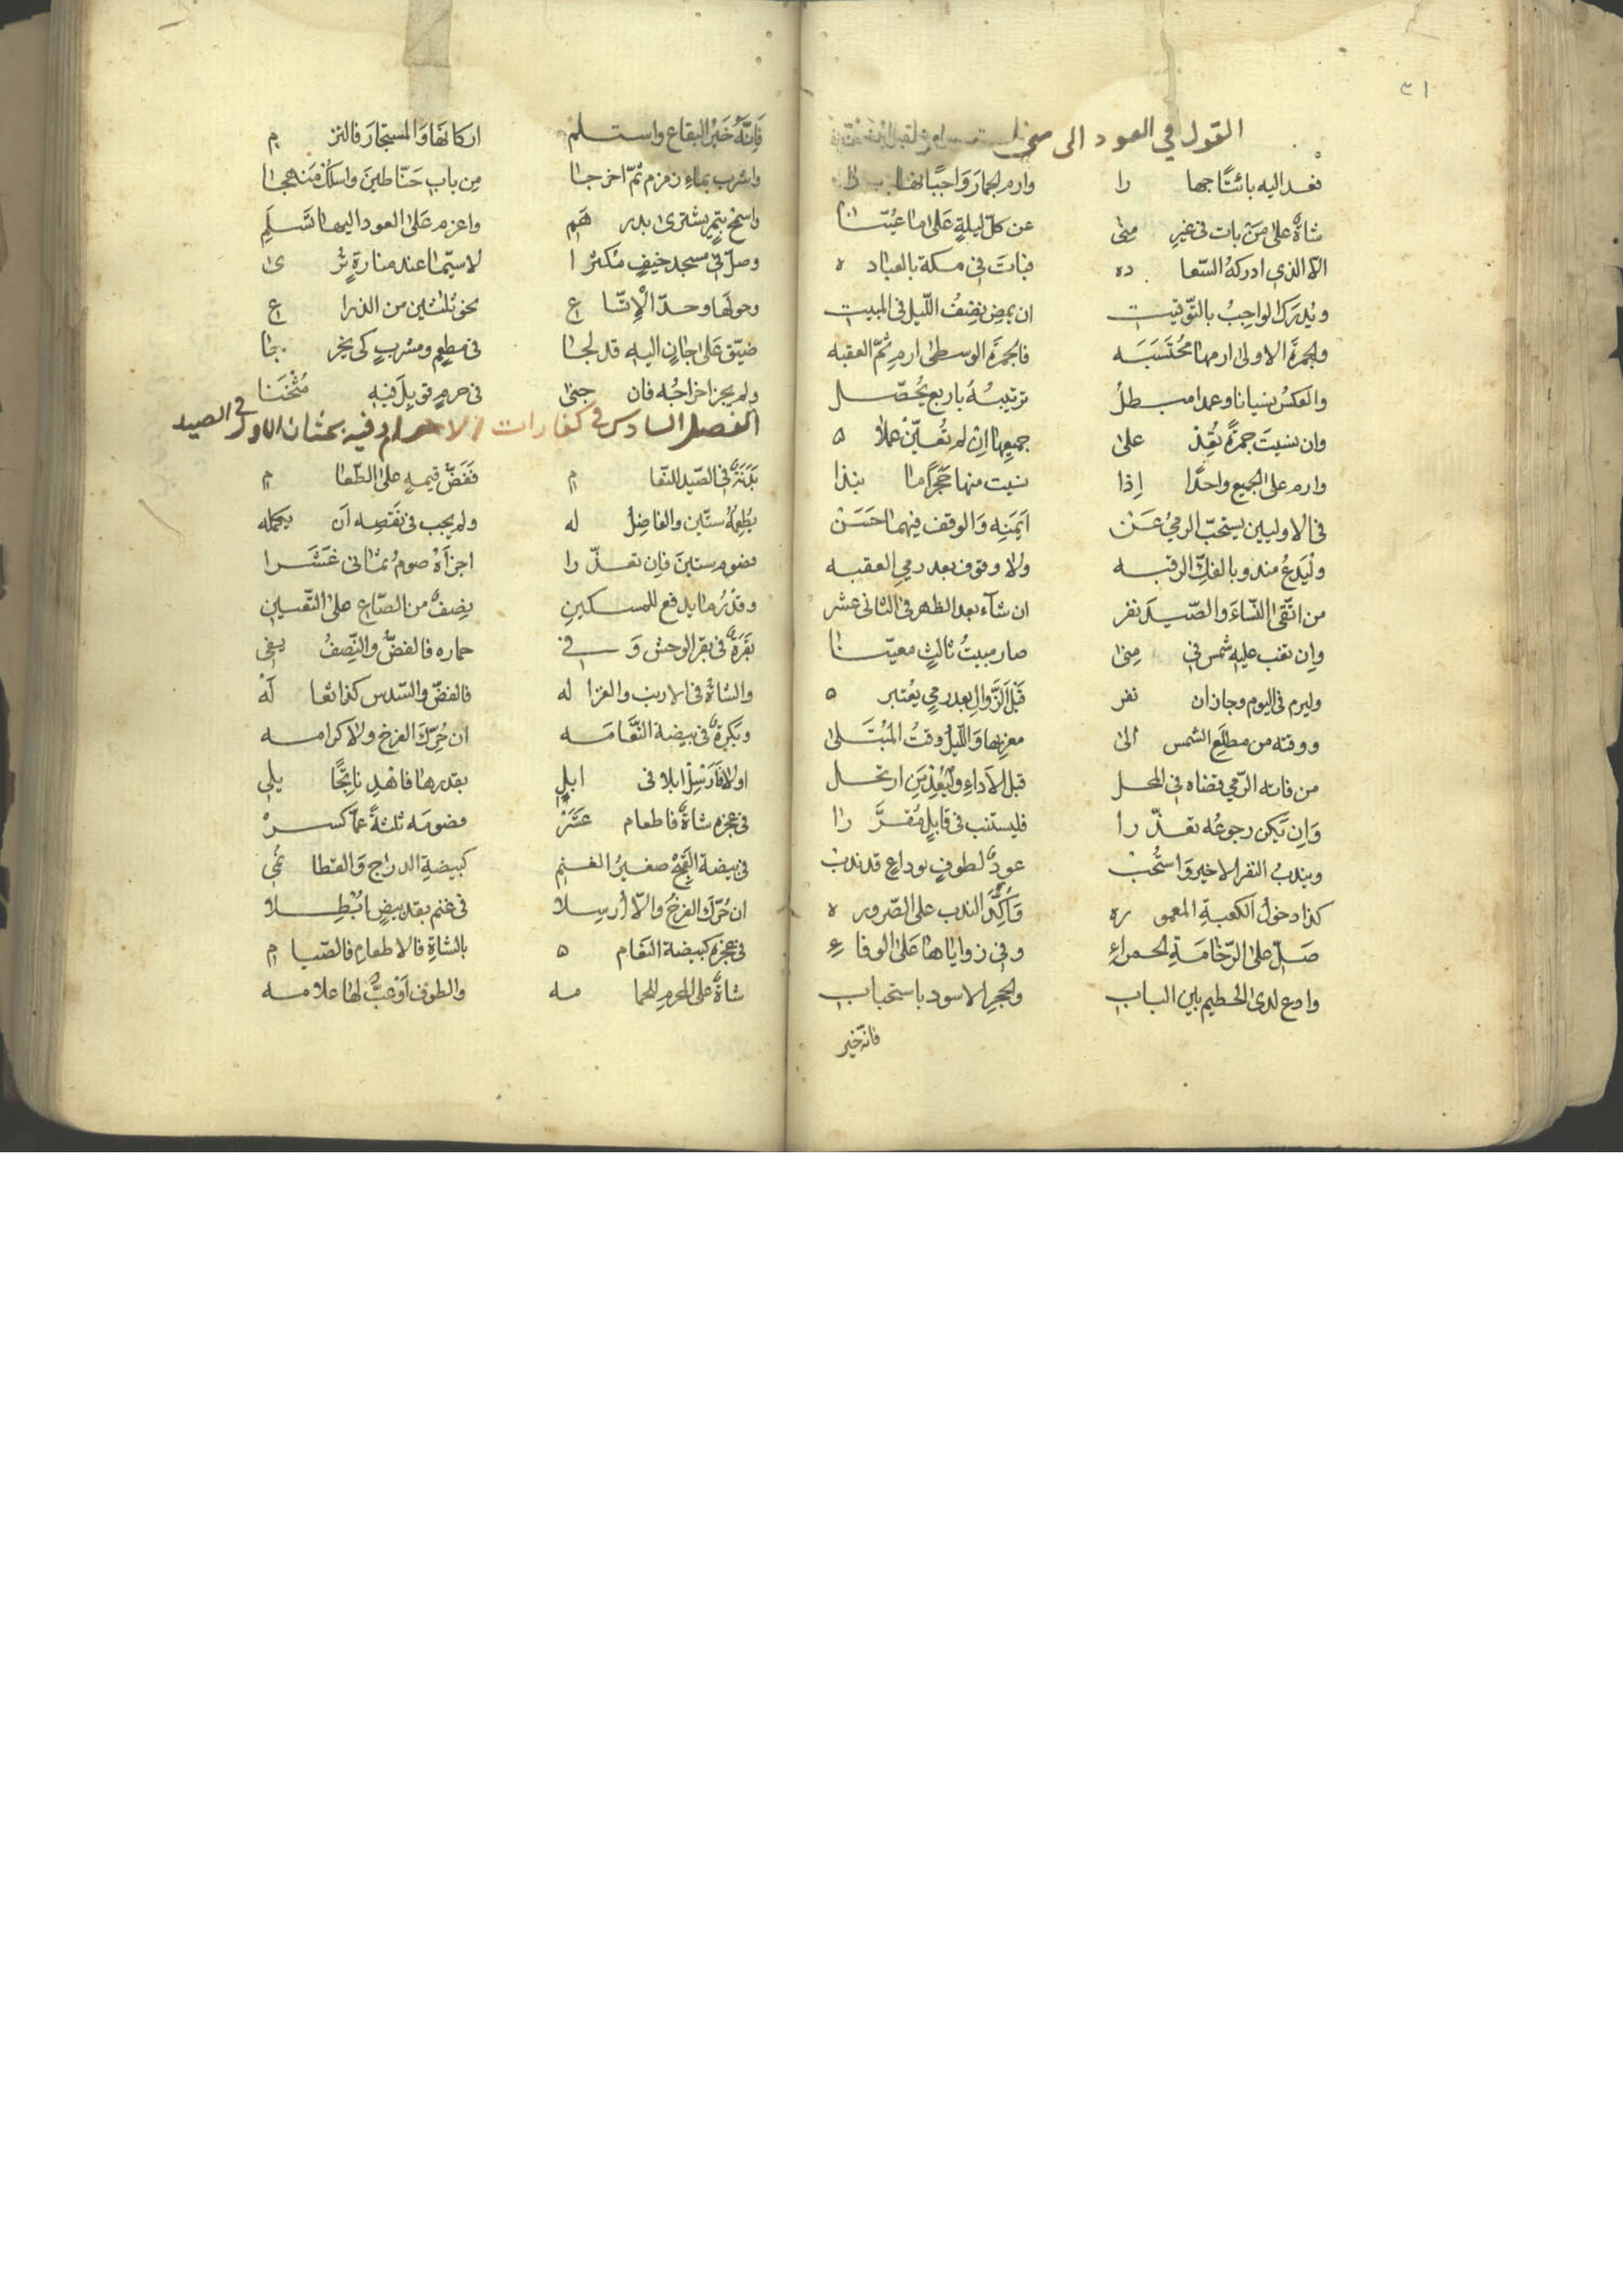 ٣١
القول في العود الى منى
فعد اليه بائتًا جهارا وارم الجمار وَاجبًا
شاةٌ على مَن بات في غيرِ مِنى عن كلّ ليلةٍ عَلى ما عُيّنا
الّا الذي ادركهُ السّعاده فباتَ في مكة بالعباده
ويُدرَك الواجبُ بالتّوقيت ان يمضِ نِصفُ اللّيل في المبيت
والجمرَةَ الاولى ارمها مُحتَسَبَه فالجمرَة الوسطى ارمِ ثمّ العقبه
والعكسُ نسيانا وعمدا مبطلُ ترتيبُهُ باربع يُحصّل
وان نسيتَ جمرَةً فعُد على جميعها ان لم تُعيّن عملا
وارم على الجميع واحدًا إذا نسيت منها حَجَرًا ما نبذا
في الاوليين يستحبّ الرميُ عَن ايمَنِهِ وَالوقف فيهما حَسَن
وليَدعُ مندوبا لفكّ الرقبه ولا وقوف بعد رمي العقبه
من اتّقى النّساءَ والصّيدَ نفر ان شآء بعد الظهر في الثاني عشر
وإن تغب عليهِ شمس في مِنى صار مبيتُ ثالثٍ معيّنا
وليرم في اليوم وجاز ان نفر قَبْلَ الزَّوالِ بعد رمي يُعتبر
ووقته من مطلَعِ الشمس الى مغربها وَاللّيلُ وقتُ المُبتَلى
من فاته الرّمي قضاه في المحل قبل الاداءِ وَليُعِد مَن ارتحل
وَإن يَكن رجوعُه تعذّرا فليستنب في قابلٍ مُقرَّرا
ويندبُ النفر الاخير وَاستُحب عودٌ لطوفِ وداعٍ قد ندب
كذا دخول الكعبةِ المعموره وَأكِّد الندب على الصّروره
صَلّ على الرّخامَةِ الحمراءِ وفي زواياها عَلى الوفاءِ
وادع لدى الحطيم بين البابِ والحجرِ الاسود باستحباب
فانه خير
فَإنَّهُ خَيرُ البقاعِ واستلم اركانها وَالمستجارَ فالتزم
واشرب بماء زمزم ثمّ اخرجا مِن باب حَنّاطينَ واسلك مَنهجا
واسمح بتمرٍ يشترى بدرهَم واعزم عَلى العود اليها تَسلَمِ
وصلّ في مسجد خيفٍ مُكثرا لا سيّما عند منارةٍ ترى
وحولَها وحدّ الإتّساع نحو ثلثين من الذراع
ضيّق عَلى جانٍ اليهِ قد لجا في مطعمٍ ومشربٍ كي يخرجا
ولم يجز اخراجُه فان جنى في حرمٍ قوبِلَ فيهِ مُثخَنا
الفصل السادس في كفارات الاحرام وفيه بحثان الاول في الصيد
بَدَنَةٌ في الصّيد للنّعام فَفَضّ قيمهٍ على الطّعام
يُطعِمُهُ ستّين والفاضِلُ له ولم يجب في نَقصِه اَن يكمله
فصوم ستينَ فإن تعذّرا اجزأهُ صومُ ثماني عَشَرا
وقدْرُ ما يدفع للمسكينِ نِصفٌ من الصّاعِ على التّعيينِ
بَقَرةٌ في بقر الوحش وَفي حماره فالفضُّ والنِّصفُ يفي
والشاةُ في الارنب والغزاله فالفضّ والسّدس كذا ثعاله
وبَكرةٌ في بيضة النَّعَامَه ان حُرِّكَ الفرخ ولا كرامه
اولا فأرسِل ابلا في ابلٍ بقدرها فاهدِ ناتِجًا يلي
في عجزه شاةٌ فاطعام عَشَر فصومَه ثلثةً عمّا كسر
في بيضة القَبجِ صغيرُ الغنمِ كبيضةِ الدراج وَالقطا نُمي
ان حُرّك الفرخُ والّا أُرسِلا في غنم بقدر بيضٍ اُبطِلا
في عجزه كبيضة النعَام بالشاةِ فالاطعامِ فالصّيام
شاةٌ على المحرمِ للحمامه والطوف اَوْ عَبٌّ لها علامه